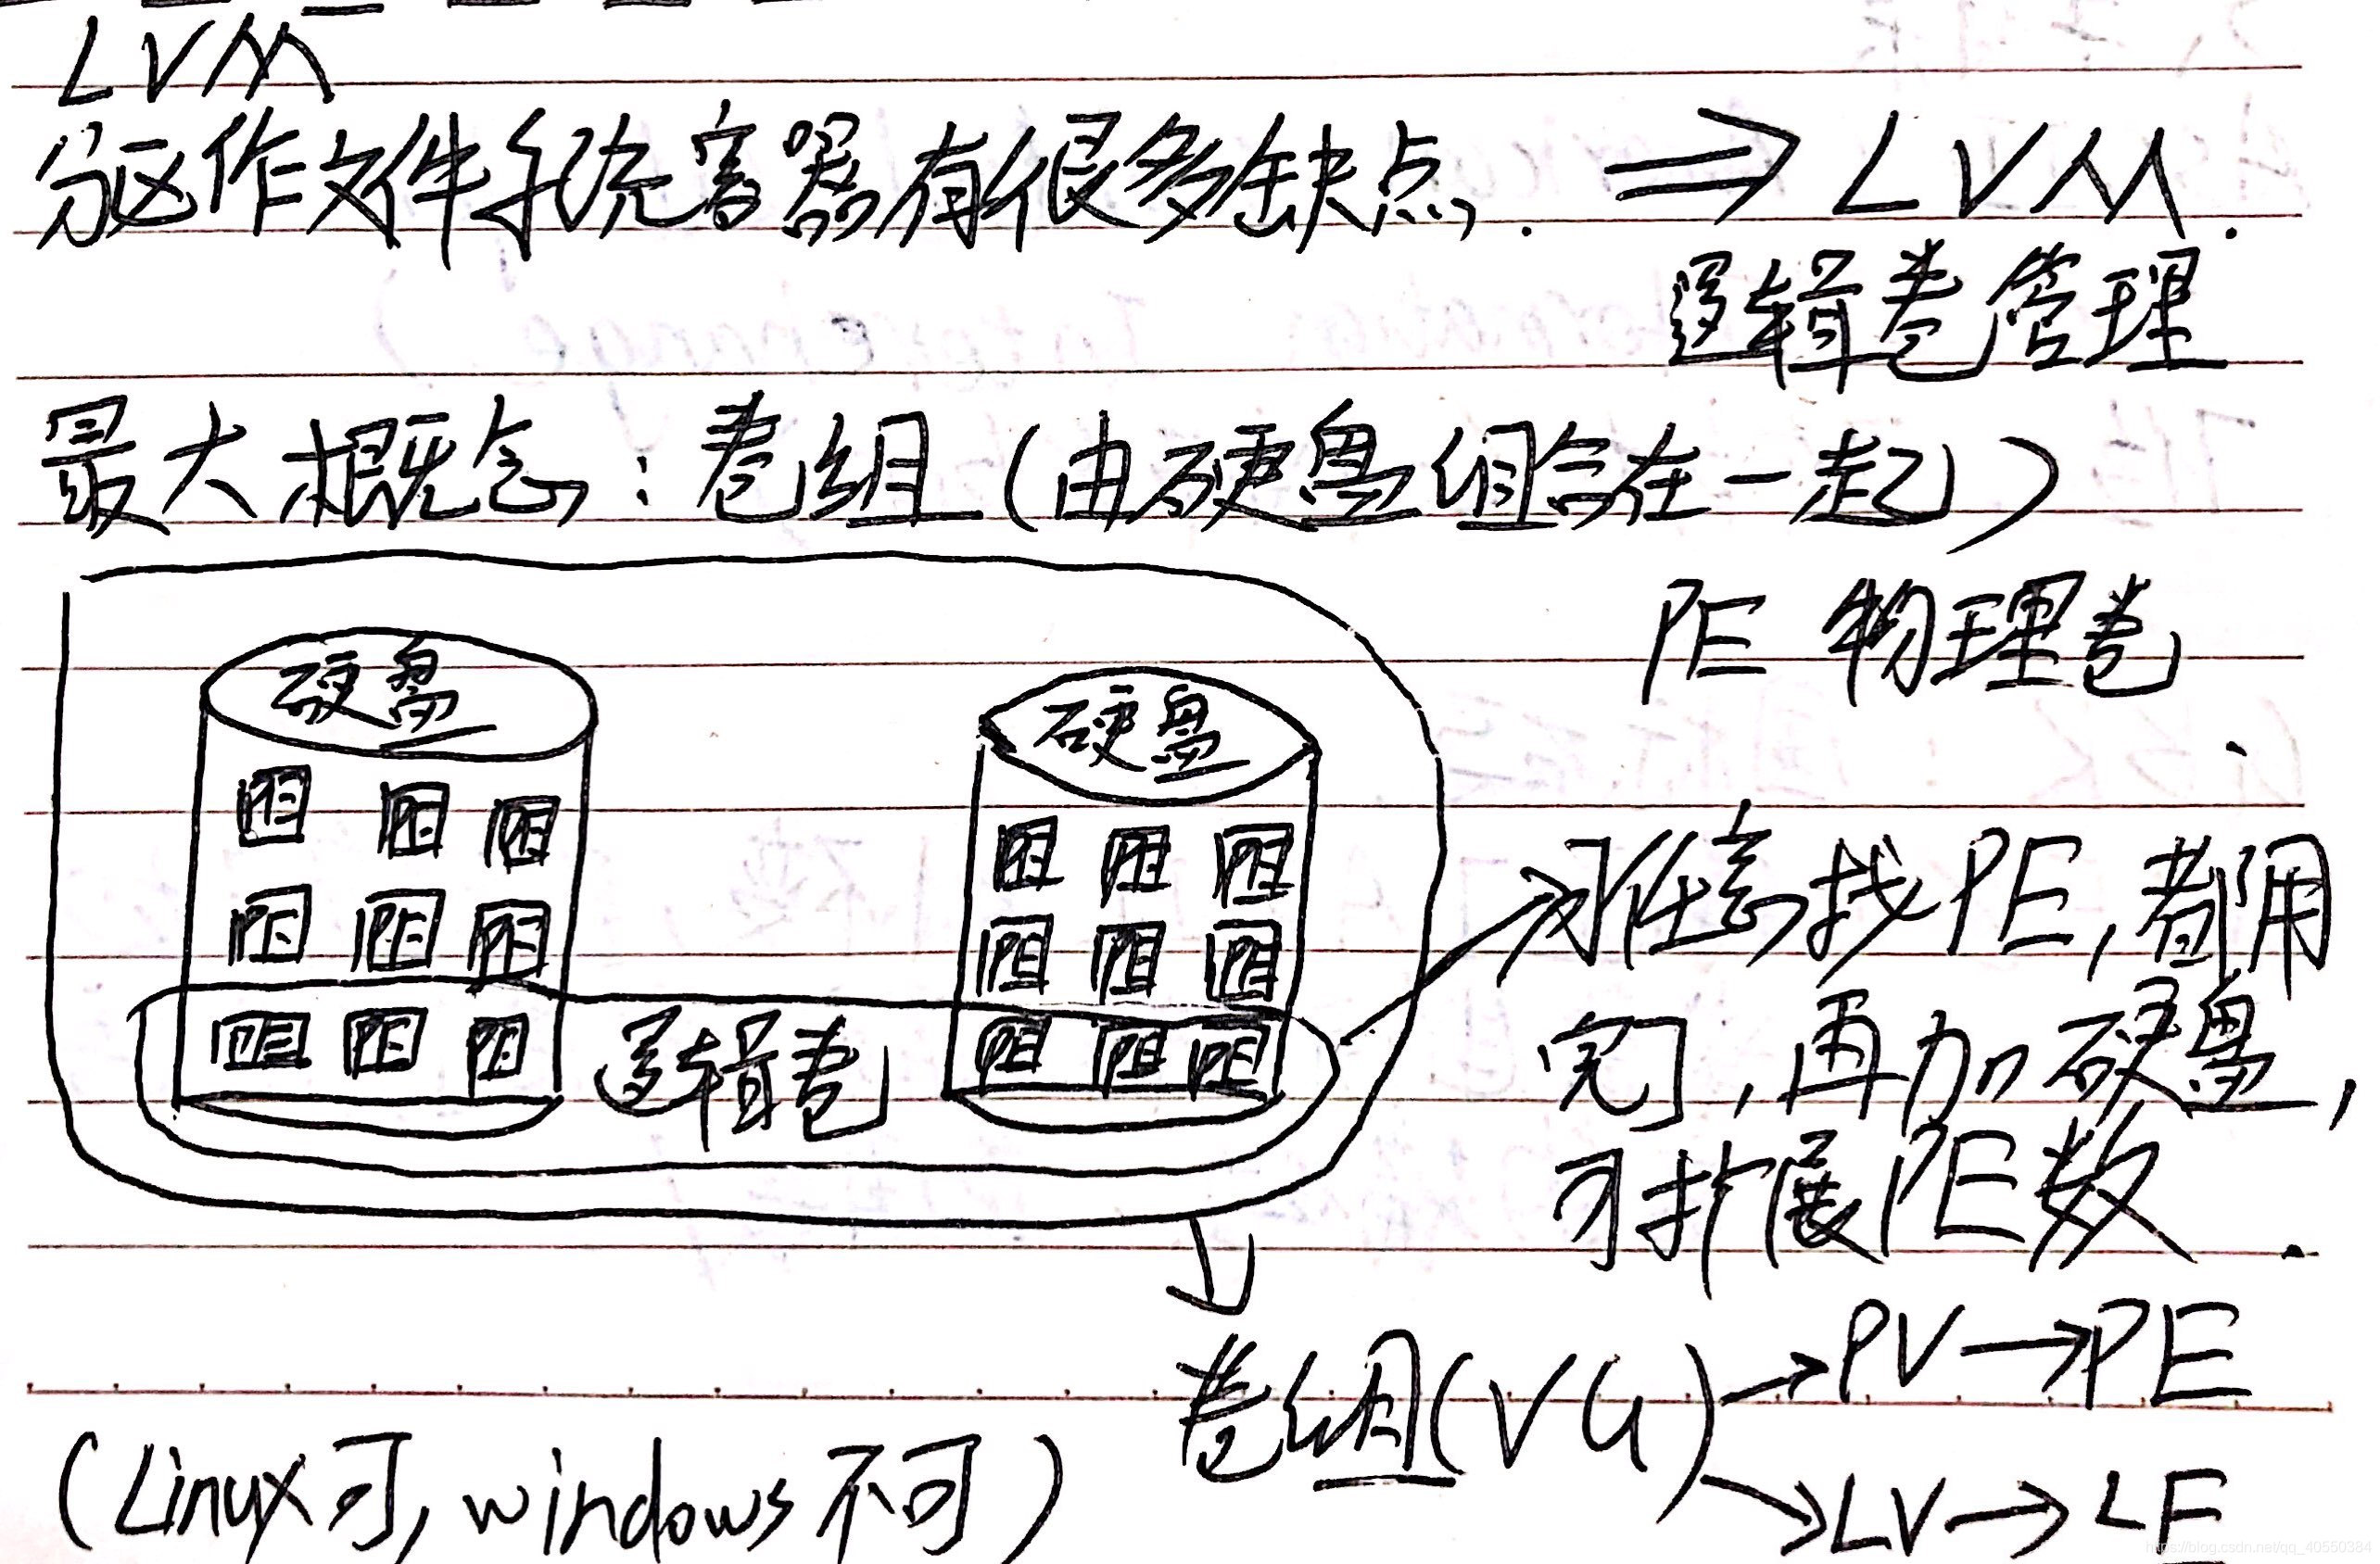 LVM
分区作文件系统容器有很多缺点. ⇒ LVM.
逻辑卷管理
最大概念:卷组(由硬盘组合在一起)
PE 物理卷
硬盘 硬盘
PE PE PE PE PE PE
PE PE PE PE PE PE
PE PE PE 逻辑卷 PE PE PE
→ 随意找PE,都用
完了,再加硬盘,
可扩展PE数.
卷组(VG) → PV → PE
→ LV → LE
(Linux可, windows不可)
https://blog.csdn.net/qq_40550384